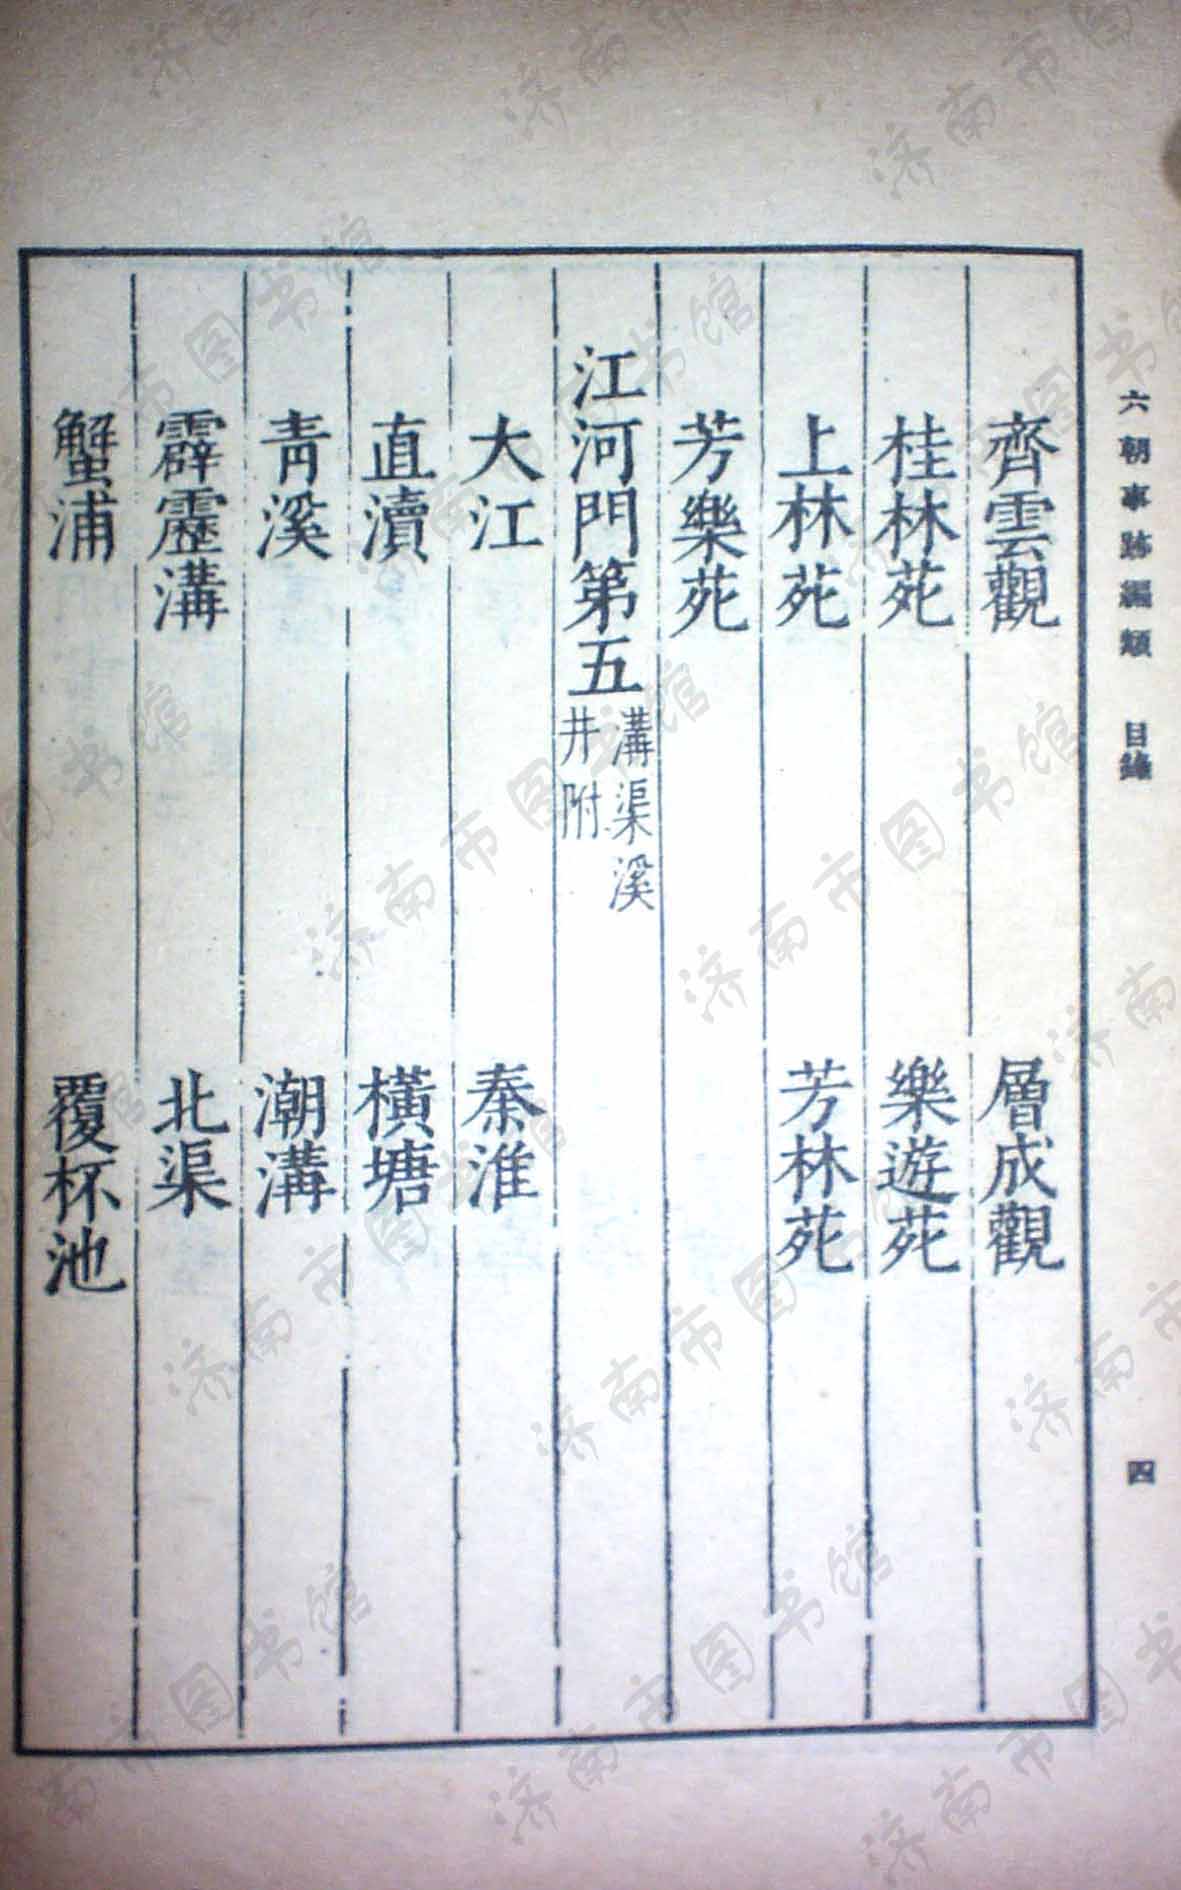 六朝事跡編類 目錄 四
齊雲觀 層成觀
桂林苑 樂遊苑
上林苑 芳林苑
芳樂苑
江河門第五 溝渠溪井附
大江 秦淮
直瀆 橫塘
青溪 潮溝
霹靂溝 北渠
蟹浦 覆杯池
济南市图书馆